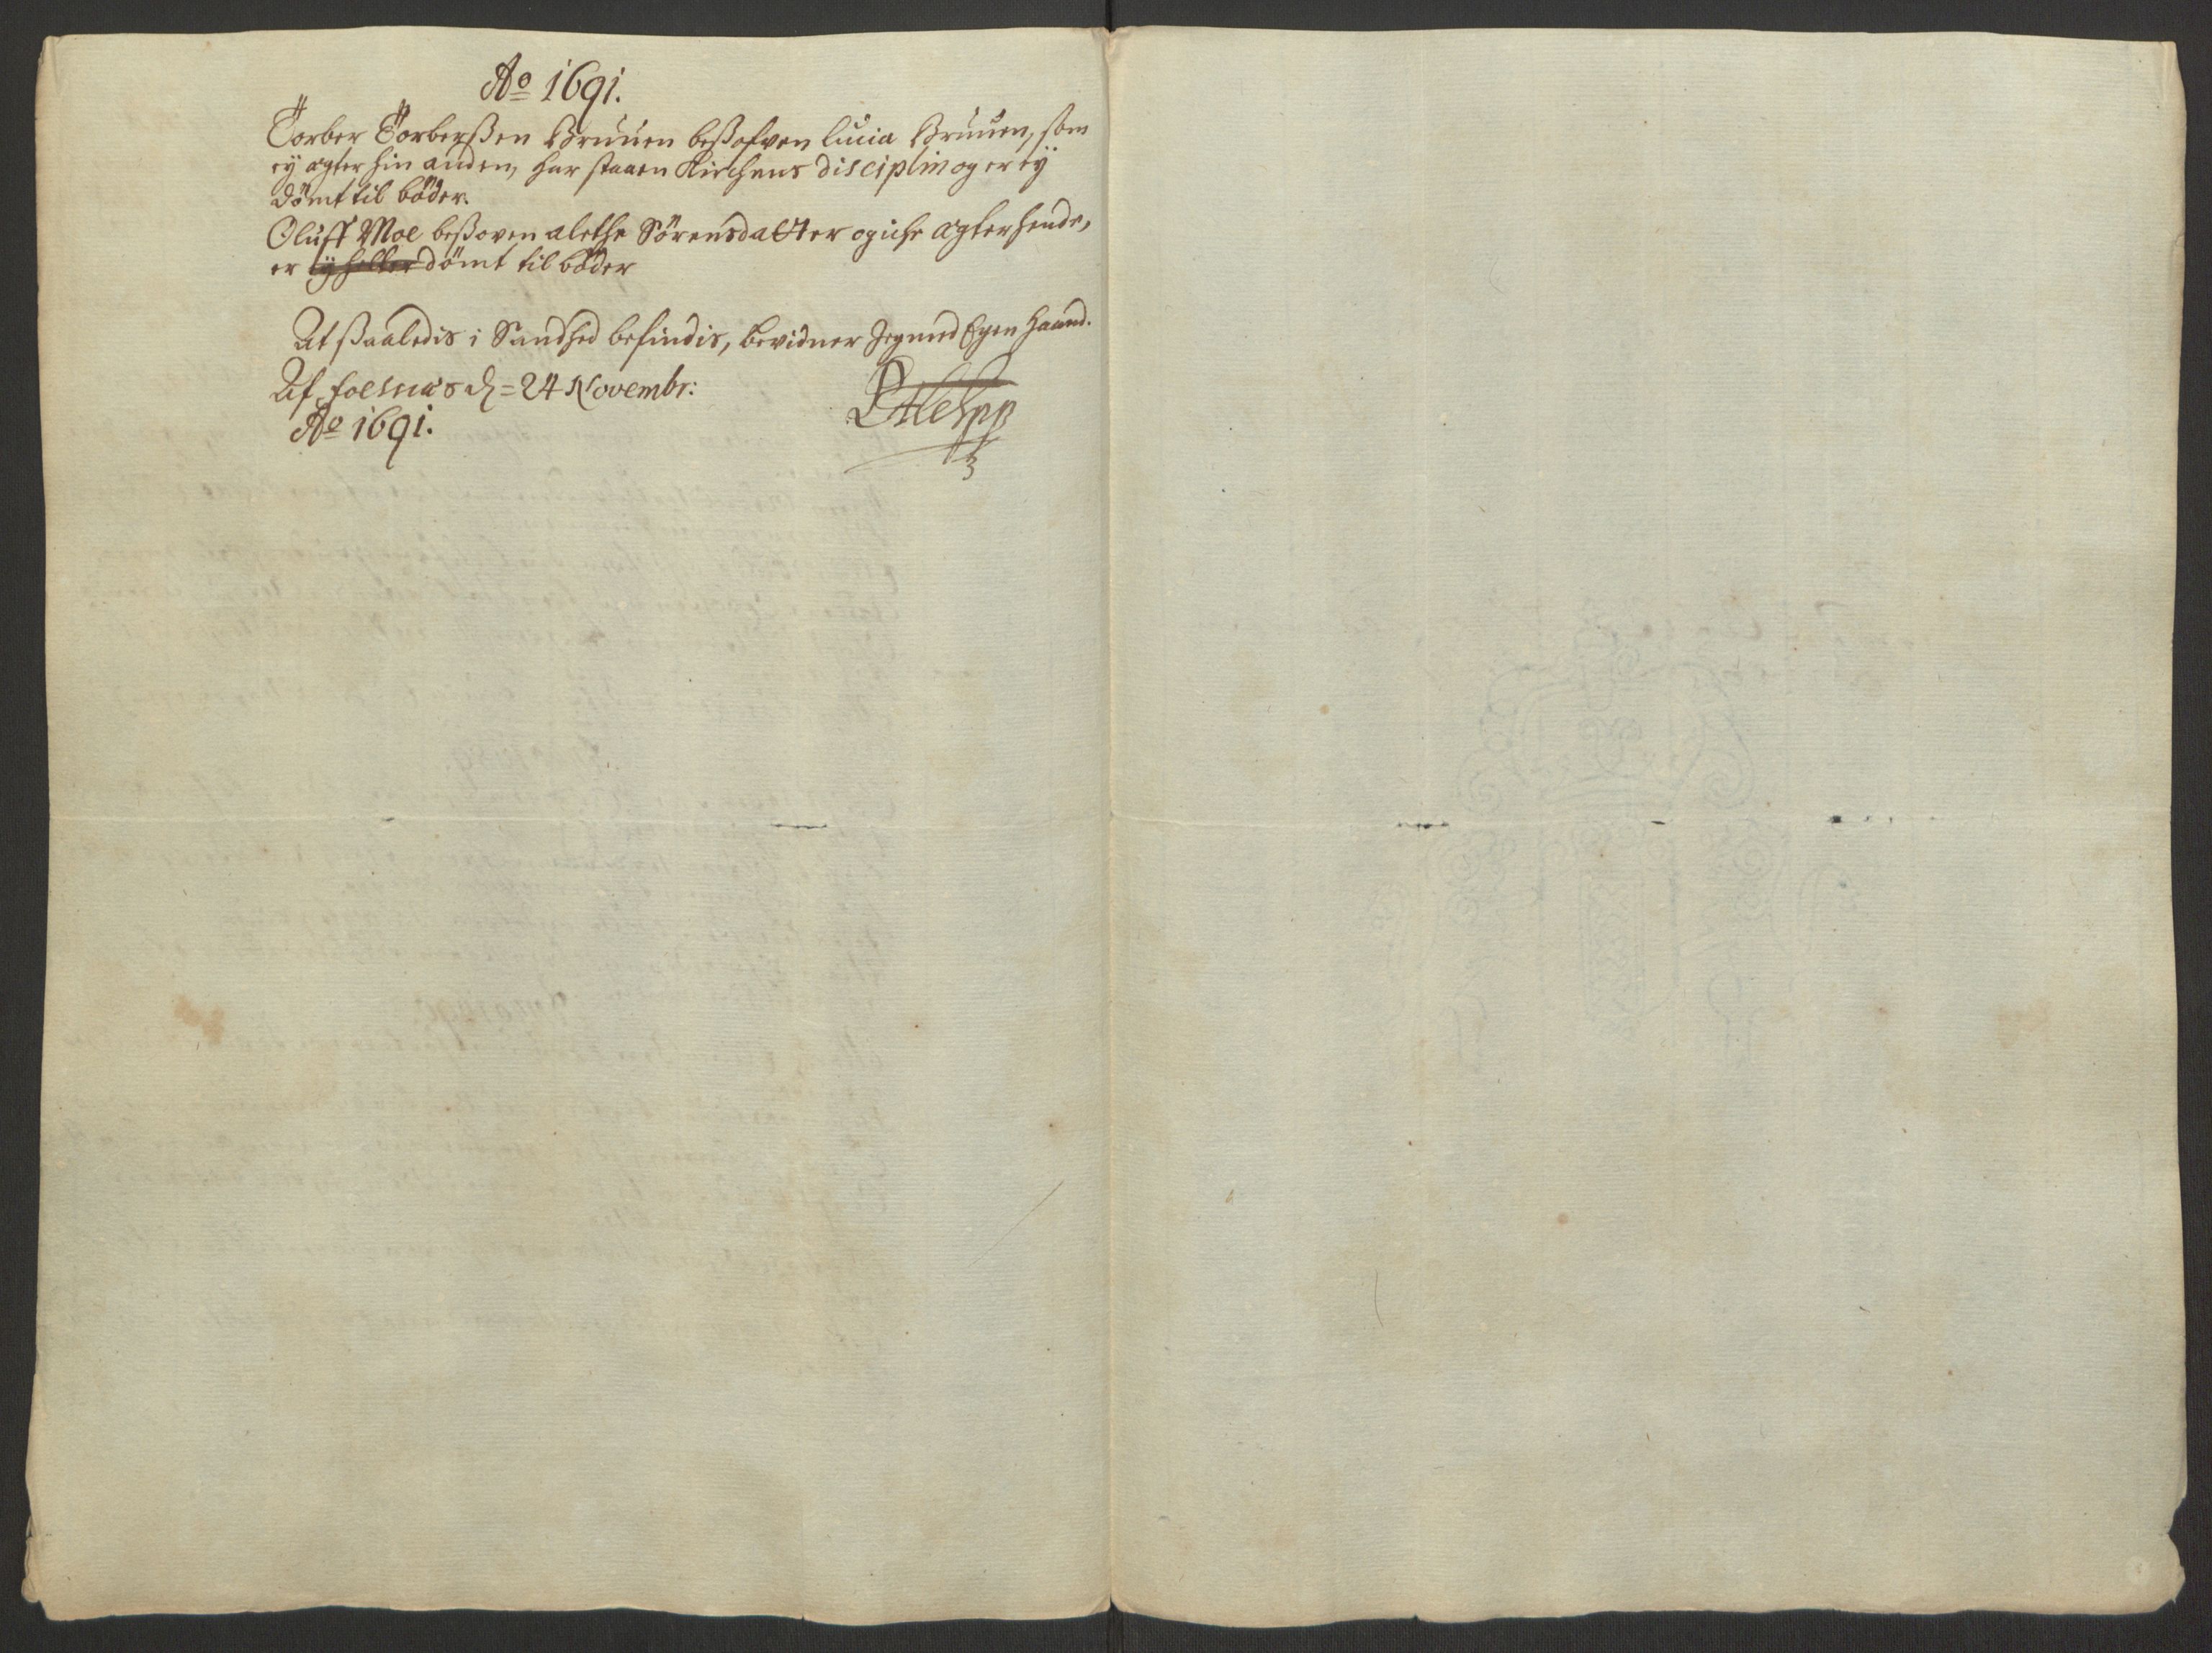 Ao 1691.
Torber Torberßen Bruuen beßofven Lucia Bruuen, som
ey agter hin anden, har staaen Kirchens disciplin og er ey
dömt til böder.
Oluff Moe beßoven Alethe Sörensdatter og iche agter hende,
er ey heller dömt til böder
At ßaaledis i Sandhed befindis, bevidner Jeg med Egen Haand.
Af d. 24 Novembr:
Ao 1691.